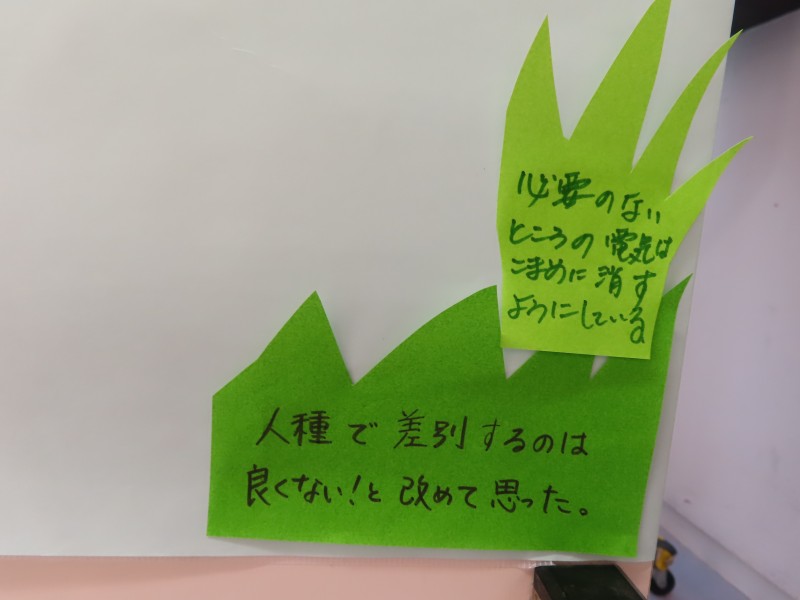 必要のない
ところの電気は
こまめに消す
ようにしている
人種で差別するのは
良くない!と改めて思った。